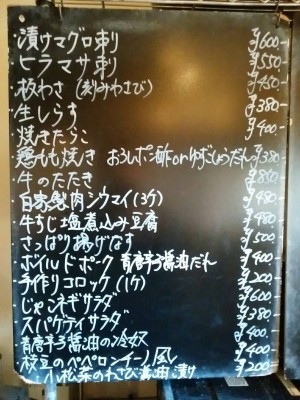 漬けマグロ刺 ¥600-
ヒラマサ刺 ¥550-
板わさ(刻みわさび) ¥450-
生しらす ¥380-
焼きたらこ ¥400-
鶏もも焼き おろしポン酢orゆずこしょうだれ ¥380-
牛のたたき ¥850-
自家製肉シウマイ(3ケ) ¥480-
牛すじ塩煮込み豆腐 ¥480-
さっぱり揚げなす ¥500
ボイルドポーク 青唐辛子醤油だれ ¥400-
手作りコロッケ(1ケ) ¥200-
じゃこネギサラダ ¥600-
スパゲティサラダ ¥380-
青唐辛子醤油の冷奴 ¥400-
枝豆のペペロンチーノ風 ¥400-
小松菜のわさび醤油漬け ¥200-